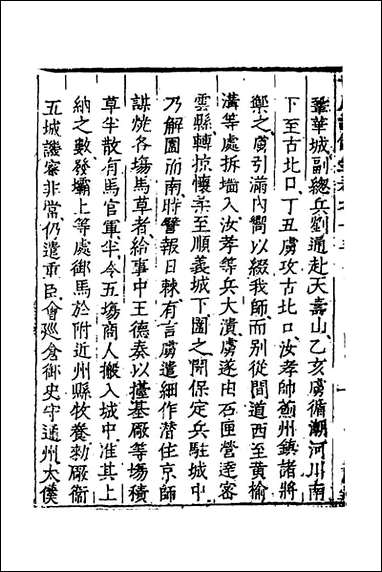 鞏華城副總兵劉通赴天壽山乙亥虜循潮河川南
下至古北口丁丑虜攻古北口汝孝帥薊州鎮諸將
禦之虜引滿內嚮以綴我師而別從間道西至黃榆
溝等處拆墻入汝孝等兵大潰虜遂由石匣營達密
雲縣轉掠懷柔至順義城下圍之聞保定兵駐城中
乃解圍而南時警報日棘有言虜遣細作潛住京師
謀燒各場馬草者給事中王德奏以擡基廠等場積
草半散有馬官軍半令五場商人搬入城中准其上
納之數發壩上等處御馬於附近州縣牧養勑廠衞
五城譏察非常仍遣重臣會廵倉御史守通州太僕